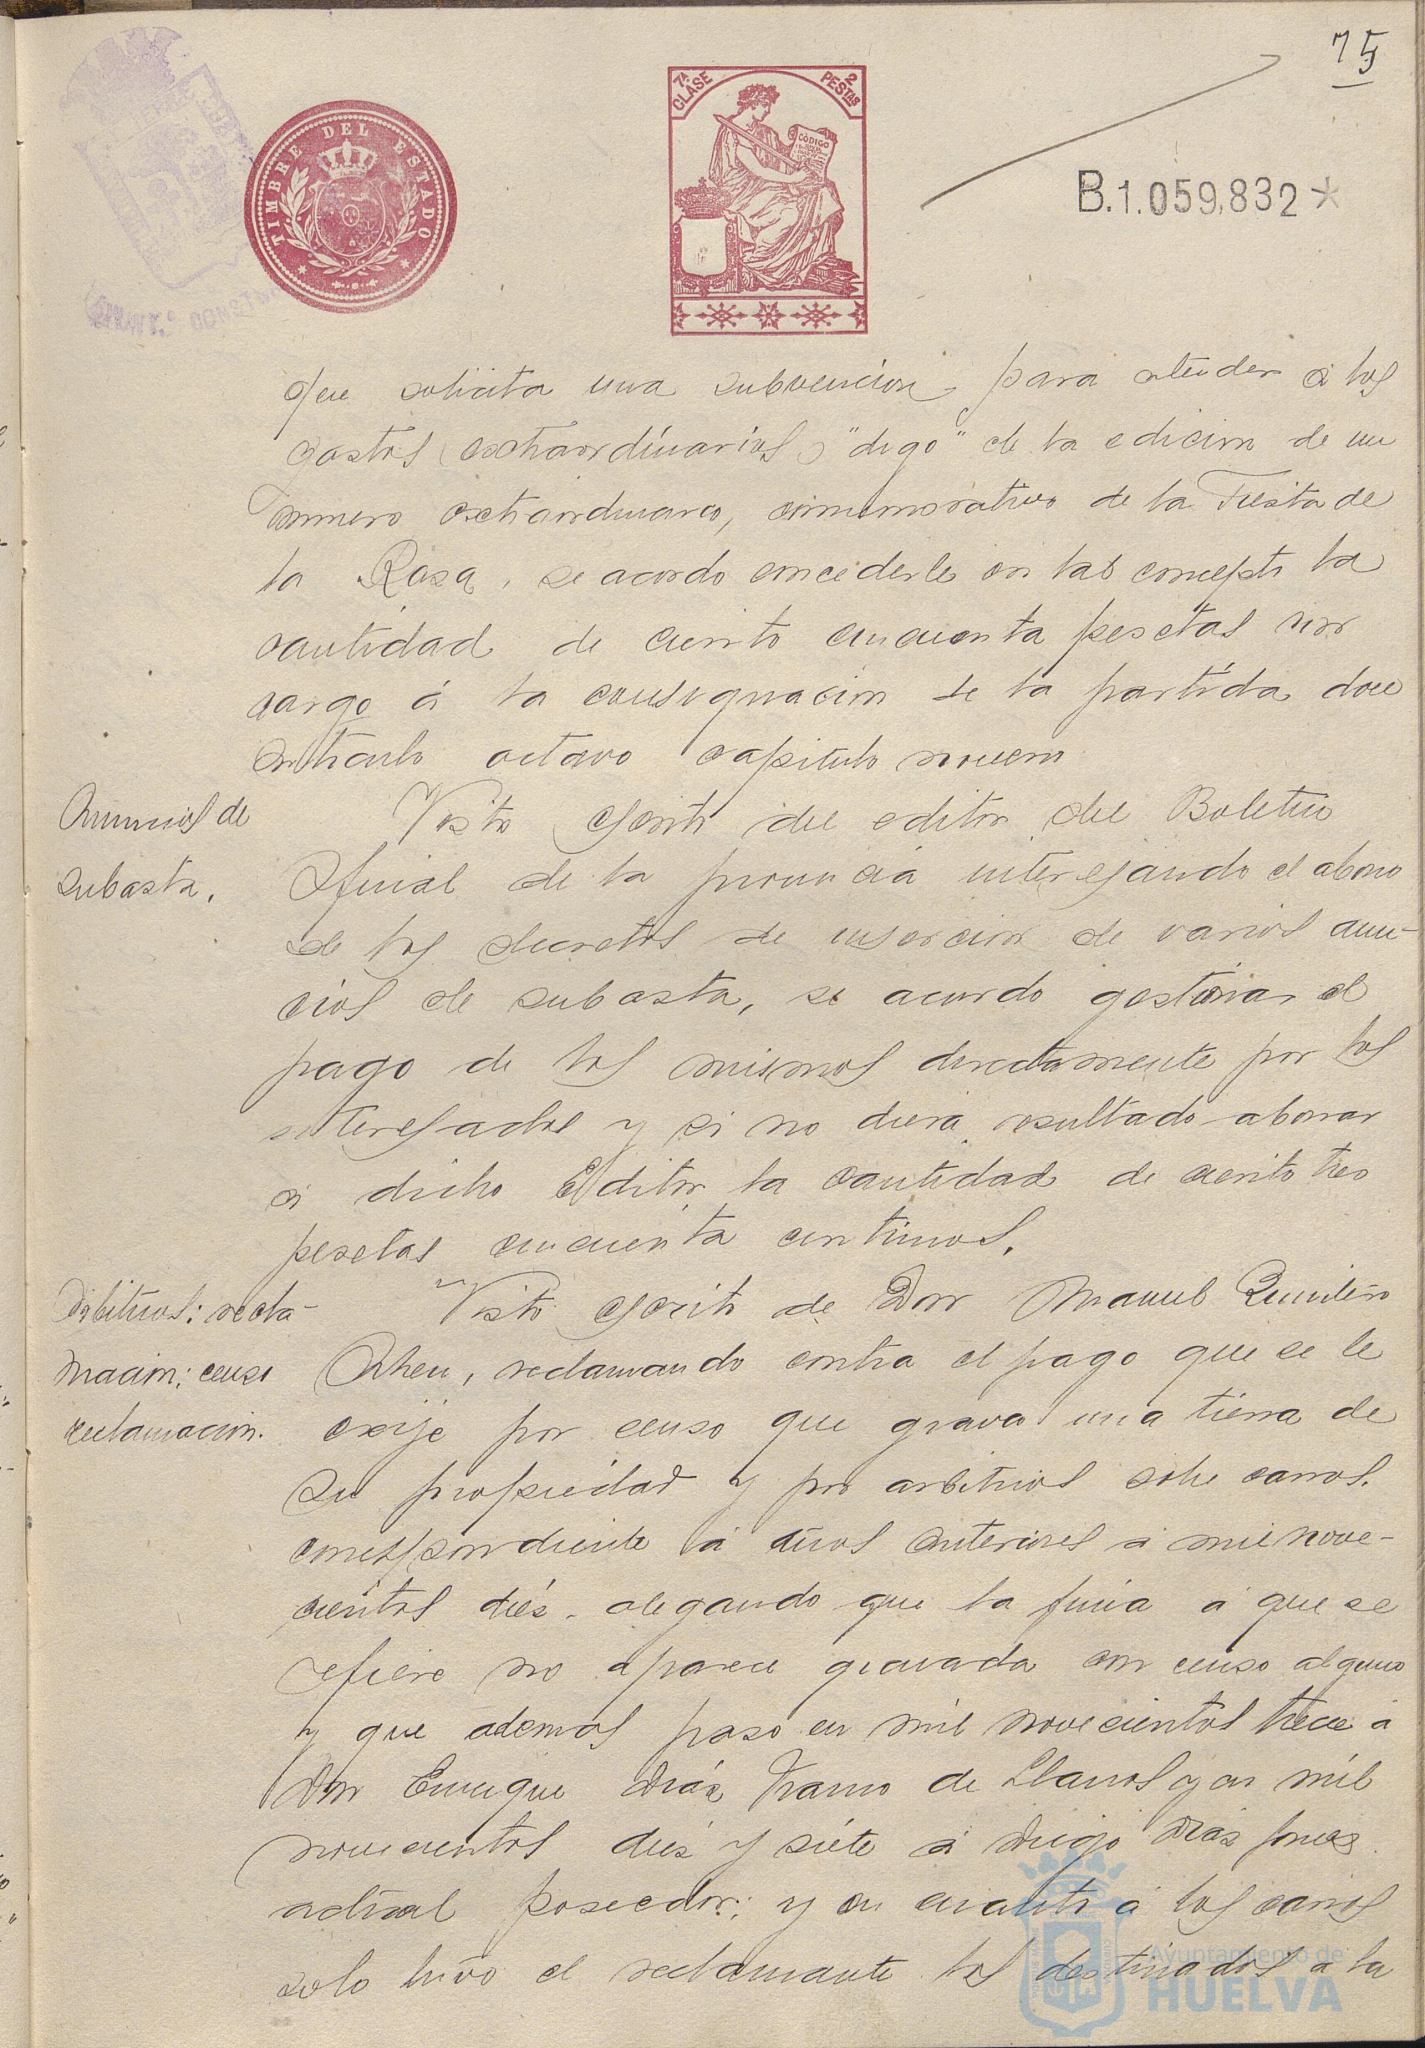 75
TIMBRE DEL ESTADO
7ª CLASE
2 PESTAS
CÓDIGO
B.1.059,832*
CONST
que solicita una subvencion, para atender á los
gastos (extraordinarios) "digo" de la edicion de un
numero extraordinario, conmemorativo de la Fiesta de
la Rosa, se acordo concederle en tal concepto la
cantidad de ciento cincuenta pesetas con
cargo á la consignacion de la partida doce
articulo octavo capitulo noveno
Anuncios de
subasta.
Visto escrito del editor del Boletin
Oficial de la provincia interesando el abono
de los decretos de insercion de varios anun-
cios de subasta, se acordo gestionar el
pago de los mismos directamente por los
interesados y si no diera resultado abonar
á dicho Editor la cantidad de ciento tres
pesetas cincuenta centimos.
Arbitrios: recla-
macion; censo
reclamacion.
Visto escrito de Don Manuel Quintero
reclamando contra el pago que se le
exije por censo que grava una tierra de
su propiedad y por arbitrios sobre carros.
correspondiente á años anteriores á mil nove-
cientos diés. alegando que la finca á que se
refiere no aparece gravada con censo alguno
y que ademas paso en mil novecientos trece á
Don Enrique Diáz Franco de Llanos y en mil
novecientos diés y siete á Diego Dias
actual poseedor; y en cuanto á los carros
solo tuvo el reclamante los destinados á la
Ayuntamiento de
HUELVA